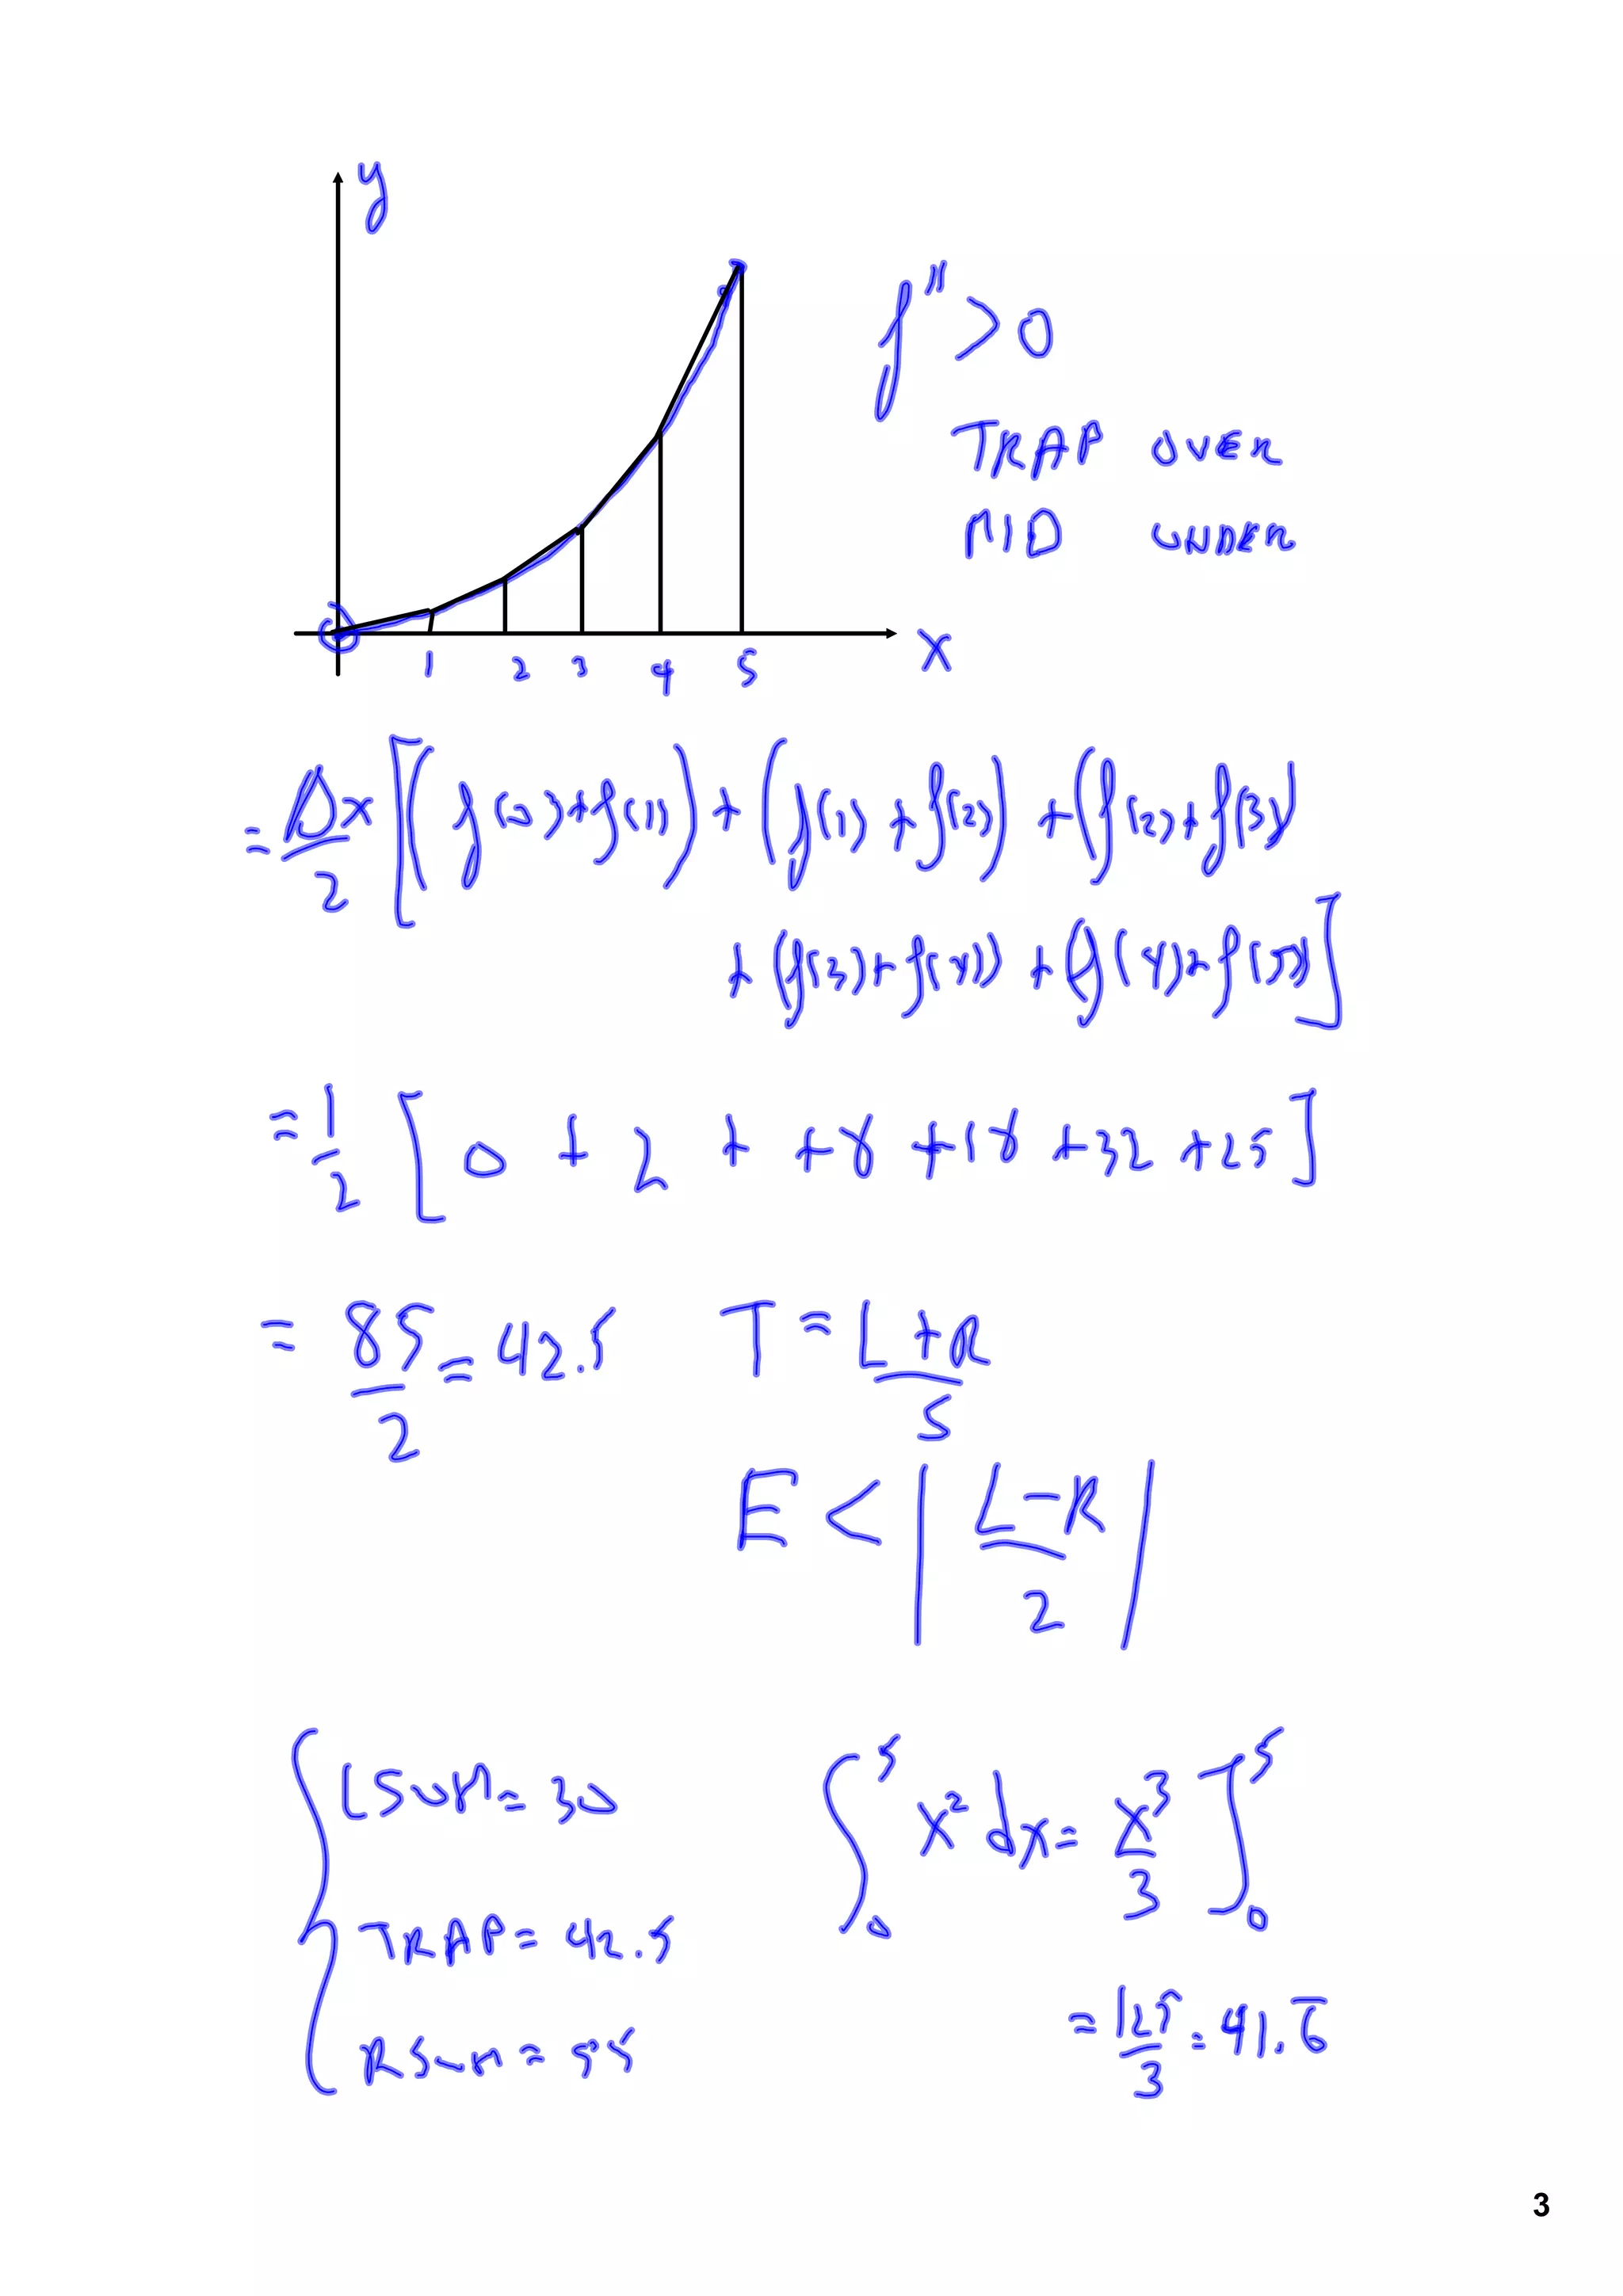 y
f" > 0
TRAP OVER
MID UNDER
1 2 3 4 5 x
= Δx/2 [(f(0)+f(1)) + (f(1)+f(2)) + (f(2)+f(3))
+ (f(3)+f(4)) + (f(4)+f(5))]
= 1/2 [0 + 2 + + 8 + 18 + 32 + 25]
= 85/2 = 42.5 T = L+R/5
E < |L-R/2|
LSUM = 30
TRAP = 42.5
RSUM = 55
∫₀⁵ x² dx = x³/3 ]₀⁵
= 125/3 = 41.6̅
3